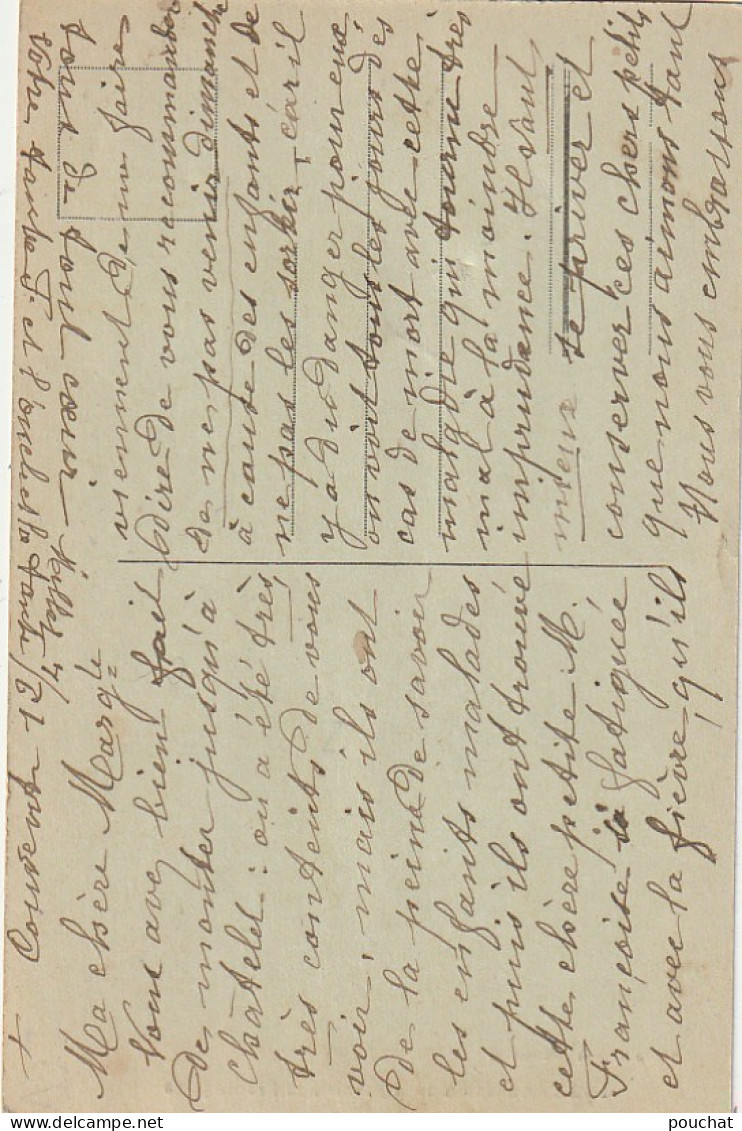 + Couvent
Ma chère Marg te
Vous avez bien fait
de monter jusqu'à
Châtelet : on a été très
très contents de vous
voir, mais ils ont
de la peine de savoir
les enfants malades
et puis ils ont trouvé
cette chère petite M.
Françoise fatiguée
et avec la fièvre, qu'ils
viennent de me faire
dire de vous recommander
de ne pas venir dimanche
à cause des enfants et de
ne pas les sortir, car il
y a du danger pour eux
on voit tous les jours des
cas de mort avec cette
maladie qui tourne très
mal à la moindre
imprudence. Il vaut
mieux se priver et
conserver ces chers petits
que nous aimons tant
Nous vous embrassons
tous de tout cœur
Votre tante J. et l'oncle
pouchat